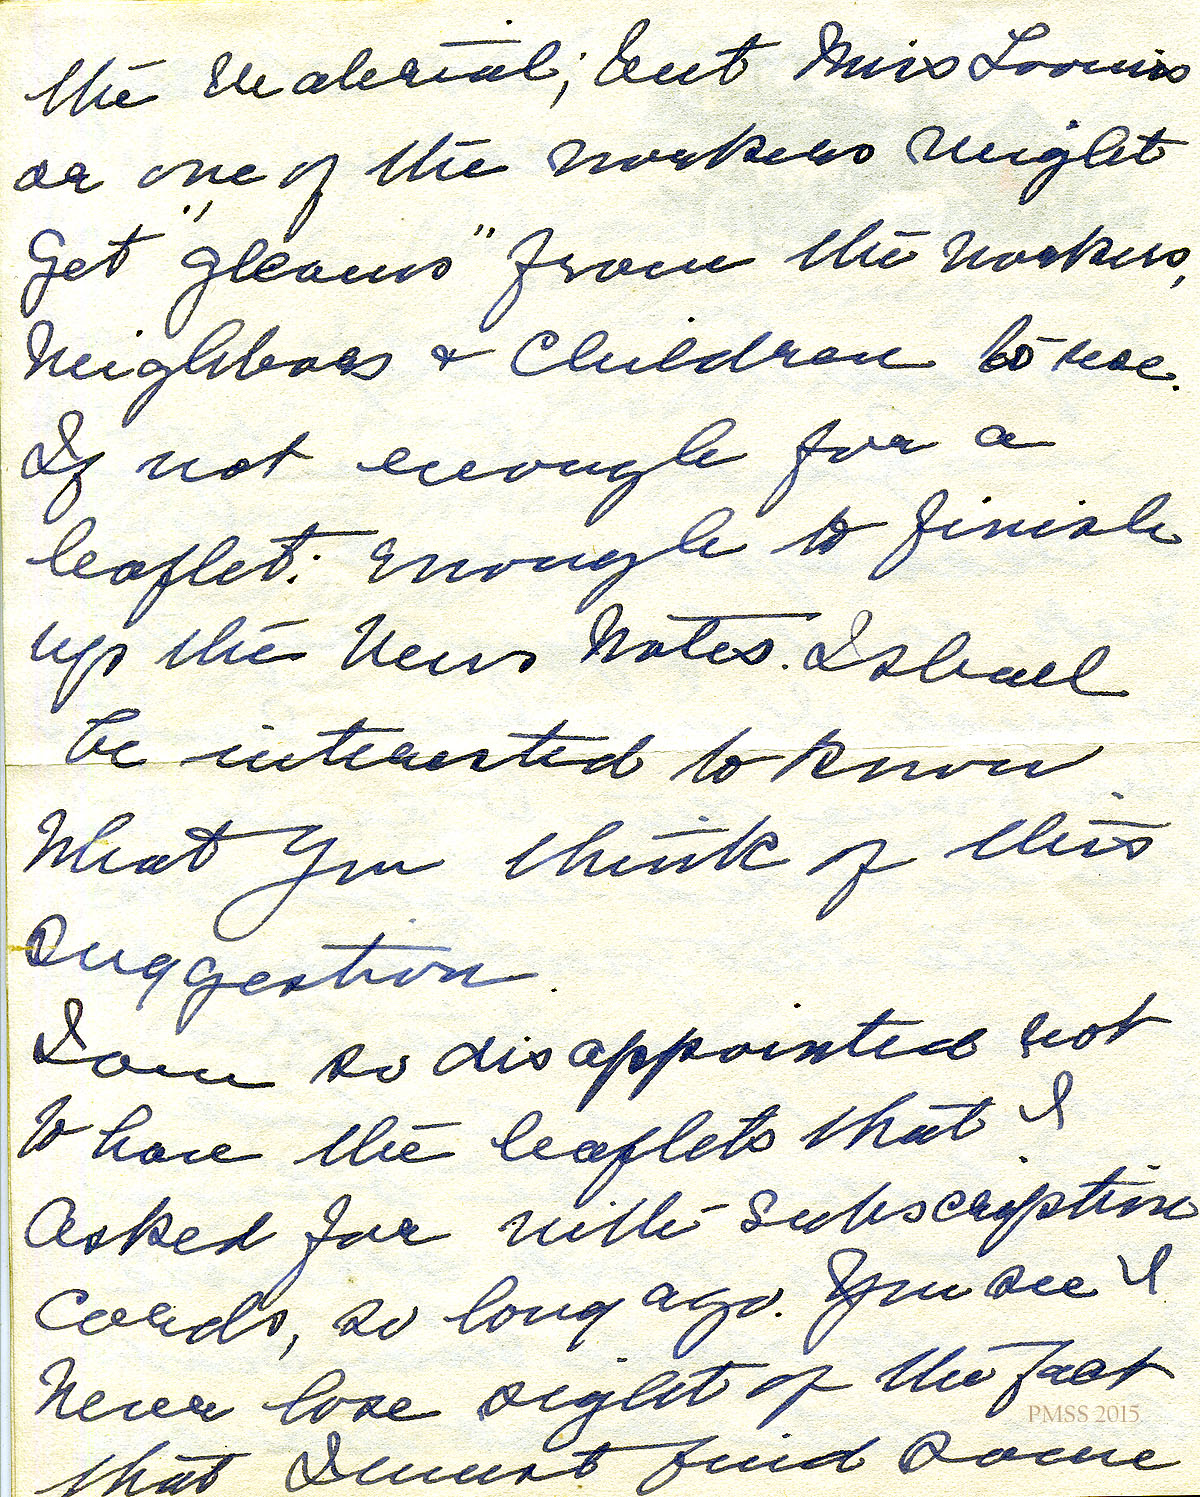 the material; but Miss Loomis
or one of the workers might
get "gleams" from the workers,
neighbors & children to use.
If not enough for a
leaflet: enough to finish
up the News Notes. I shall
be interested to know
what you think of this
suggestion.
I am so disappointed not
to have the leaflets that I
asked for with subscription
cards, so long ago. You see I
never lose sight of the fact
PMSS 2015
that I must find some